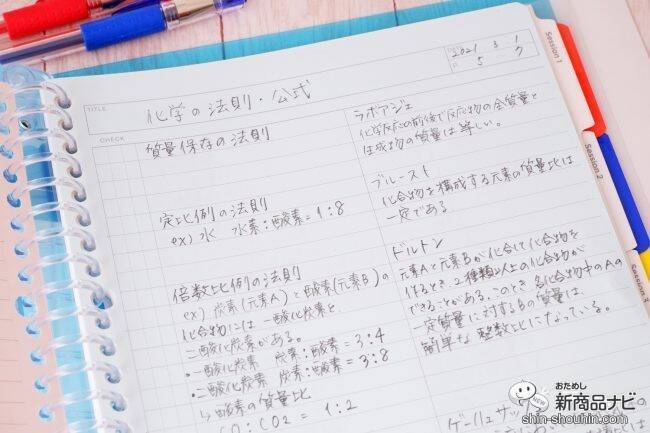 TITLE
化学の法則・公式
2021 3 1
5 7
CHECK
質量保存の法則
ラボアジェ
化学反応の前後で反応物の全質量と
生成物の質量は等しい。
定比例の法則
ex) 水 水素:酸素=1:8
プルースト
化合物を構成する元素の質量比は
一定である
倍数比例の法則
ex) 炭素(元素A)と酸素(元素B)の
化合物には一酸化炭素と
二酸化炭素がある。
・一酸化炭素 炭素:酸素=3:4
・二酸化炭素 炭素:酸素=3:8
↳酸素の質量比
CO:CO2=1:2
ドルトン
元素Aと元素Bが化合して化合物を
作るとき、2種類以上の化合物が
できることがある。このとき各化合物中のAの
一定質量に対するBの質量は
簡単な整数比になっている。
ゲーリュサッ
Session 1
Session 2
Session 3
NEW
おためし
新商品ナビ
shin-shouhin.com